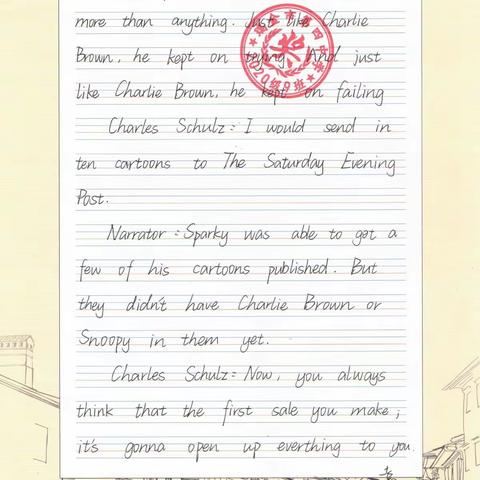 more than anything. Just like Charlie
Brown, he kept on trying. And just
like Charlie Brown, he kept on failing
Charles Schulz: I would send in
ten cartoons to The Saturday Evening
Post.
Narrator: Sparky was able to get a
few of his cartoons published. But
they didn't have Charlie Brown or
Snoopy in them yet.
Charles Schulz: Now, you always
think that the first sale you make,
it's gonna open up everthing to you.
2020级9班